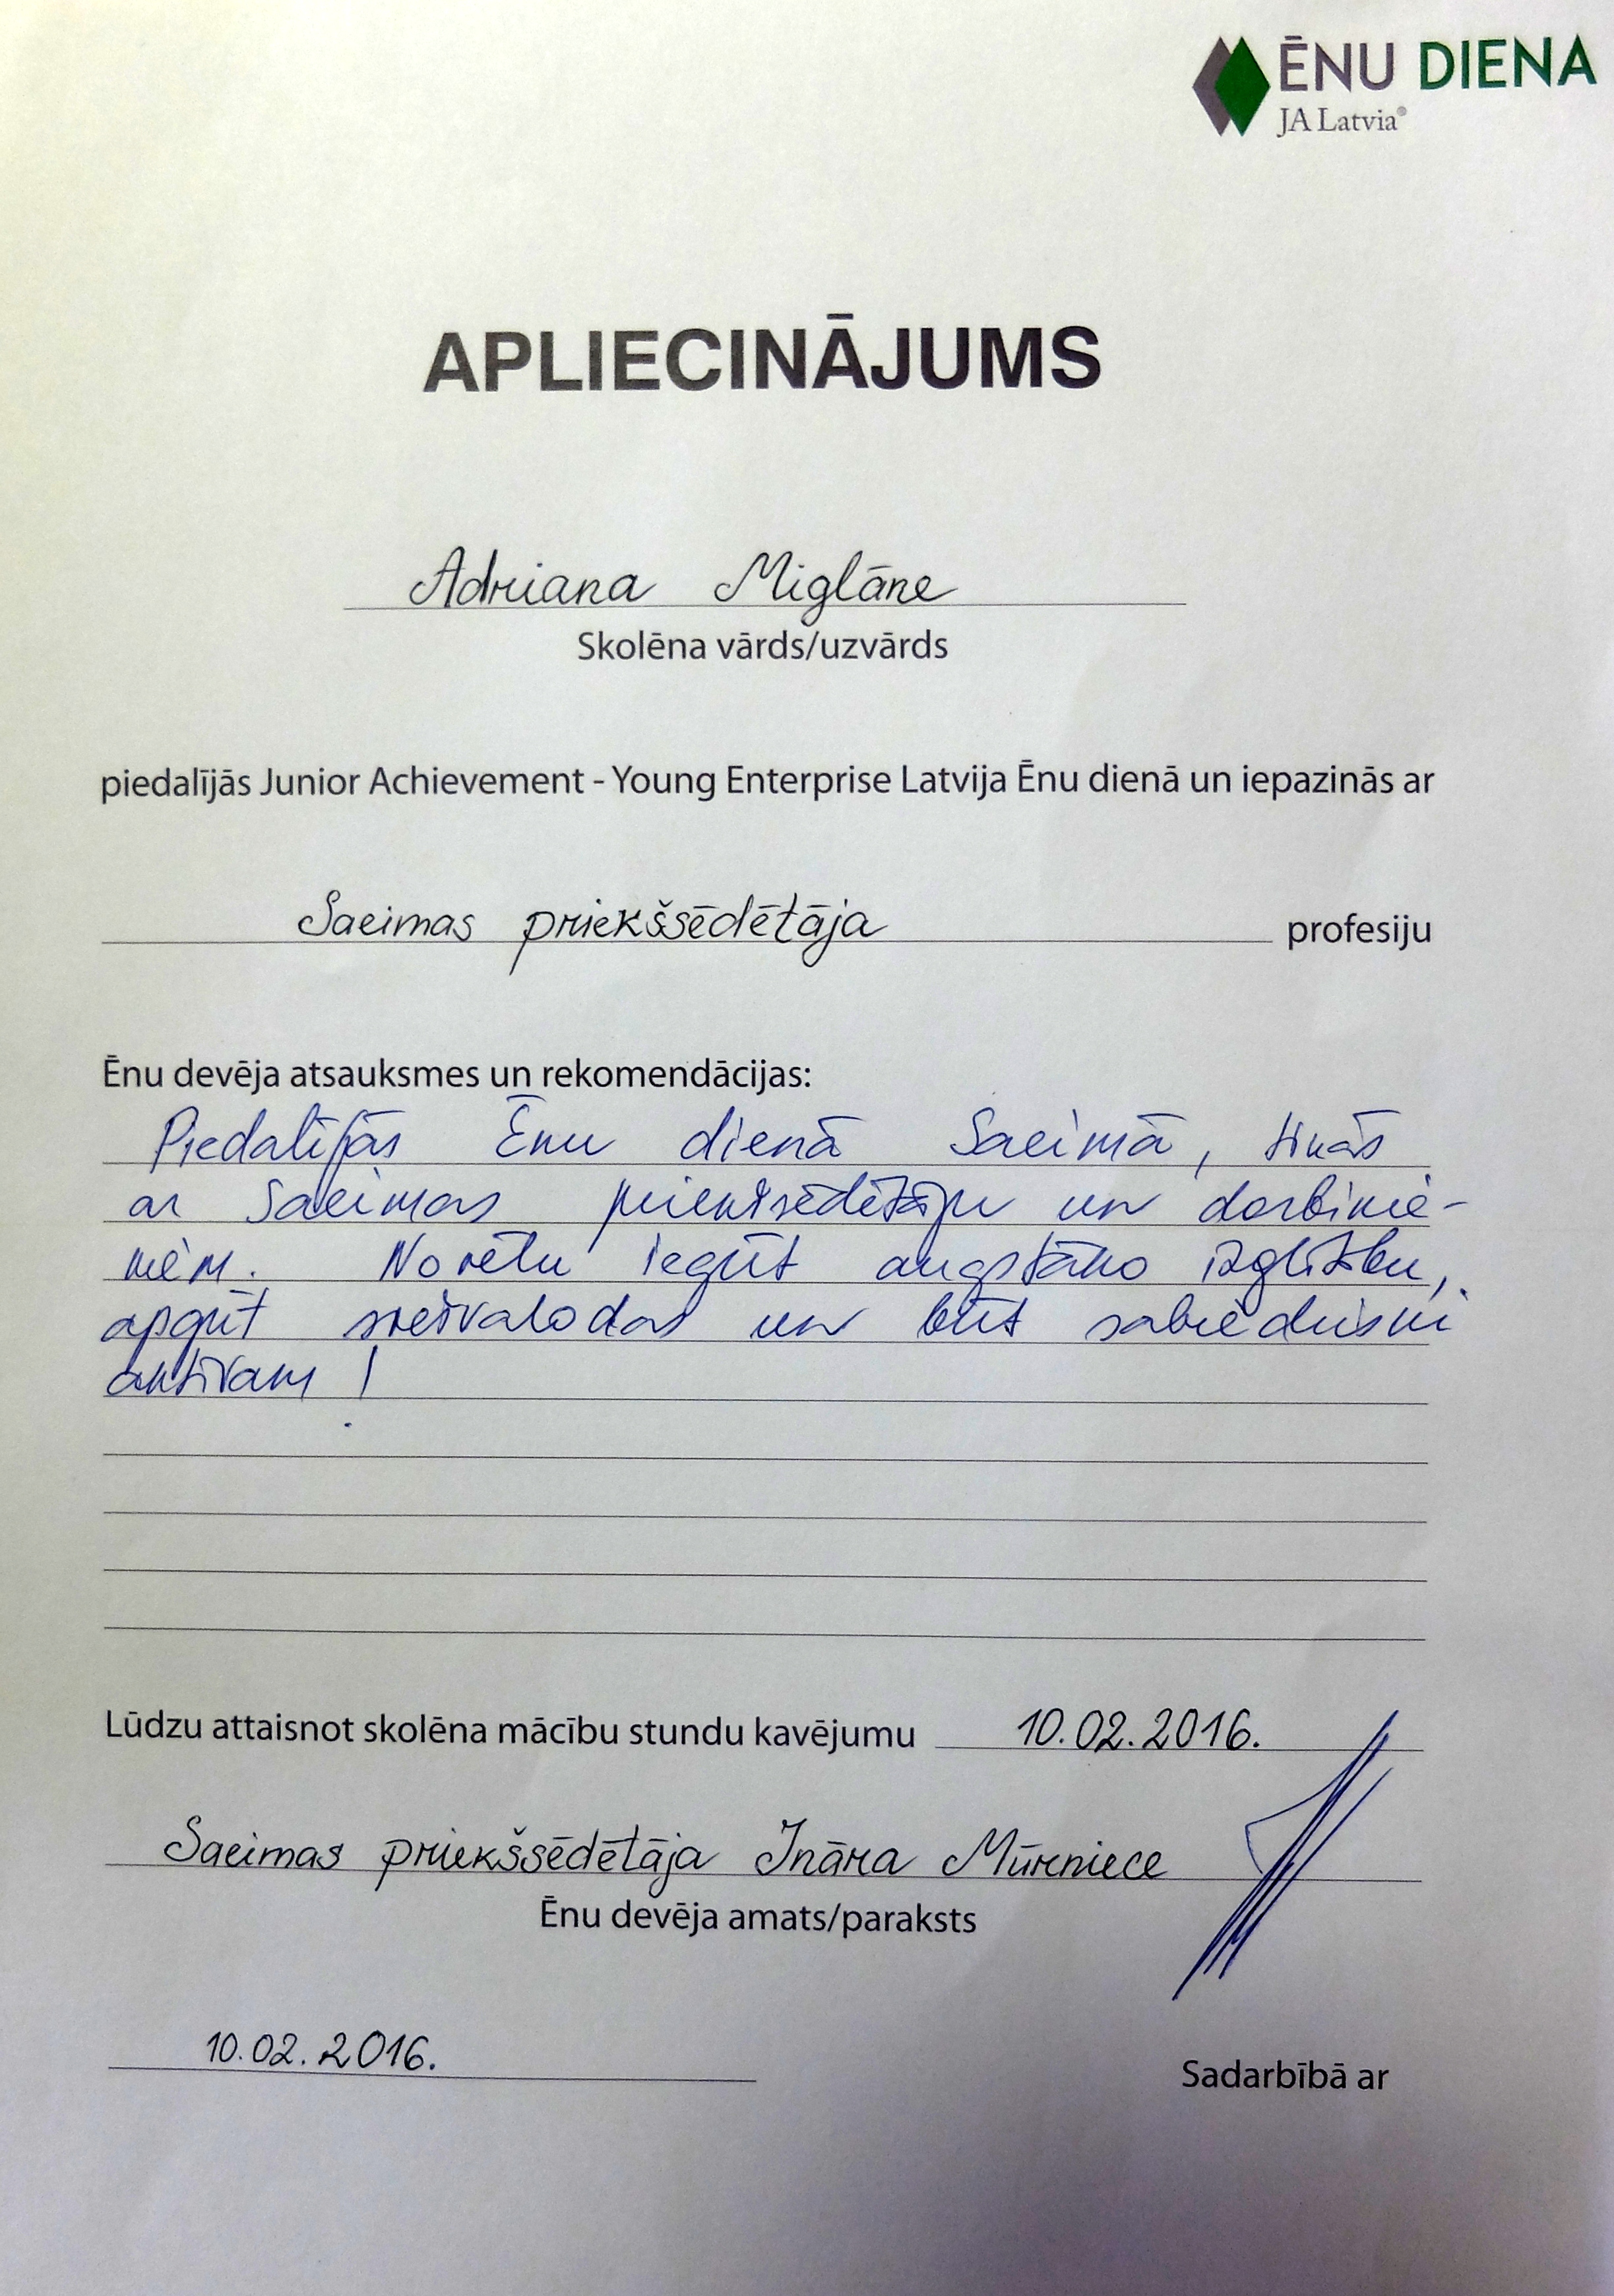 ĒNU DIENA
JA Latvia®
APLIECINĀJUMS
Adriana Miglāne
Skolēna vārds/uzvārds
piedalījās Junior Achievement - Young Enterprise Latvija Ēnu dienā un iepazinās ar
Saeimas priekšsēdētāja profesiju
Ēnu devēja atsauksmes un rekomendācijas:
Piedalījās Ēnu dienā Saeimā, tikās
ar Saeimas priekšsēdētāju un darbinie-
kiem. Novēlu iegūt augstāko izglītību,
apgūt svešvalodas un būt sabiedriski
aktīvam!
Lūdzu attaisnot skolēna mācību stundu kavējumu 10.02.2016.
Saeimas priekšsēdētāja Ināra Mūrniece
Ēnu devēja amats/paraksts
10.02.2016.
Sadarbībā ar